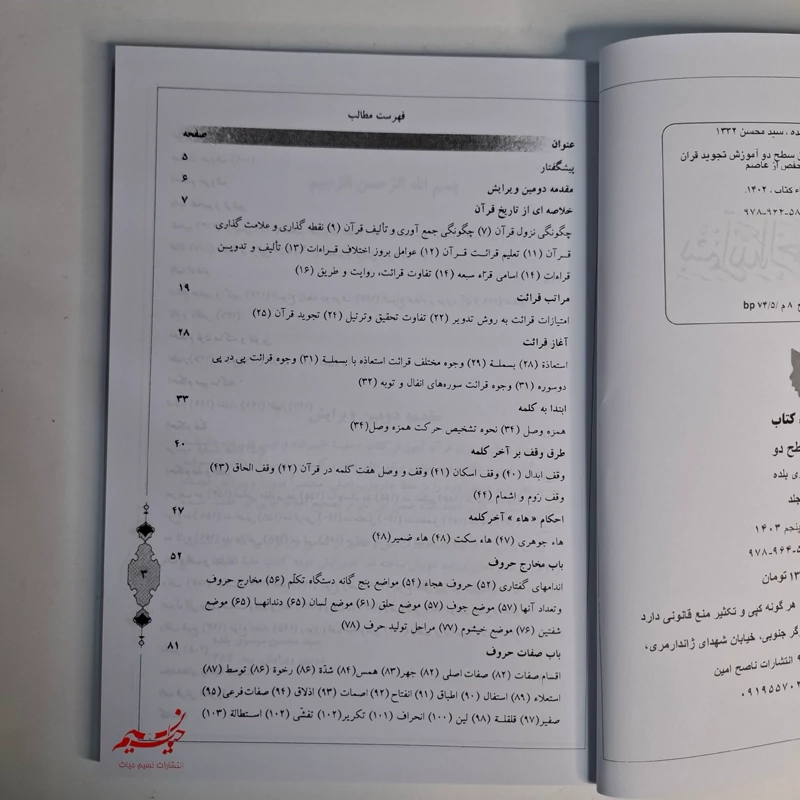 فهرست مطالب
عنوان
صفحه
پیشگفتار ۵
مقدمه دومین ویرایش ۶
خلاصه ای از تاریخ قرآن ۷
چگونگی نزول قرآن (۷) چگونگی جمع آوری و تألیف قرآن (۹) نقطه گذاری و علامت گذاری
قرآن (۱۱) تعلیم قرائت قرآن (۱۲) عوامل بروز اختلاف قراءات (۱۳) تألیف و تدوین
قراءات (۱۴) اسامی قرّاء سبعه (۱۴) تفاوت قرائت، روایت و طریق (۱۶)
مراتب قرائت ۱۹
امتیازات قرائت به روش تدویر (۲۲) تفاوت تحقیق وترتیل (۲۴) تجوید قرآن (۲۵)
آغاز قرائت ۲۸
استعاذة (۲۸) بسملة (۲۹) وجوه مختلف قرائت استعاذه با بسملة (۳۱) وجوه قرائت پی در پی
دوسوره (۳۱) وجوه قرائت سوره‌های انفال و توبه (۳۲)
ابتدا به کلمه ۳۳
همزه وصل (۳۴) نحوه تشخیص حرکت همزه وصل(۳۴)
طرق وقف بر آخر کلمه ۴۰
وقف ابدال (۴۰) وقف اسکان (۴۱) وقف و وصل هفت کلمه در قرآن (۴۲) وقف الحاق (۴۳)
وقف رَوم و اشمام (۴۴)
احکام « هاء » آخرکلمه ۴۷
هاء جوهری (۴۷) هاء سکت (۴۸) هاء ضمیر(۴۸)
باب مخارج حروف ۵۲
اندامهای گفتاری (۵۲) حروف هجاء (۵۴) مواضع پنج گانه دستگاه تکلّم (۵۶) مخارج حروف
وتعداد آنها (۵۷) موضع جوف (۵۷) موضع حلق (۶۱) موضع لسان (۶۵) دندانهـا (۶۵) موضع
شفتین (۷۶) موضع خیشوم (۷۷) مراحل تولید حرف (۷۸)
باب صفات حروف ۸۱
اقسام صفات (۸۲) صفات اصلی (۸۲) جهر(۸۳) همس(۸۴) شدّة (۸۶) رخوة (۸۶) توسط (۸۷)
استعلاء (۸۹) استفال (۹۰) اطباق (۹۱) انفتاح (۹۲) اصمات (۹۳) اذلاق (۹۴) صفات فرعی(۹۵)
صفیر(۹۷) قلقلـة (۹۸) لین (۱۰۰) انحراف (۱۰۱) تکریر(۱۰۲) تفشّی (۱۰۲) استطالة (۱۰۳)
۳
نسیم حیات
انتشارات نسیم حیات
سید محسن ۱۳۳۲
سطح دو آموزش تجوید قرآن
حفص از عاصم
کتاب، ۱۴۰۲.
۹۷۸-۹۶۴-۵۸
bp ۷۴/۵/ ۸ م
کتاب
طح دو
ی بلده
جلد
پنجم ۱۴۰۳
۹۷۸-۹۶۴-۵
تومان
هر گونه کپی و تکثیر منع قانونی دارد
جنوبی، خیابان شهدای ژاندارمری،
انتشارات ناصح امین
۰۹۱۹۵۵۷۰۲